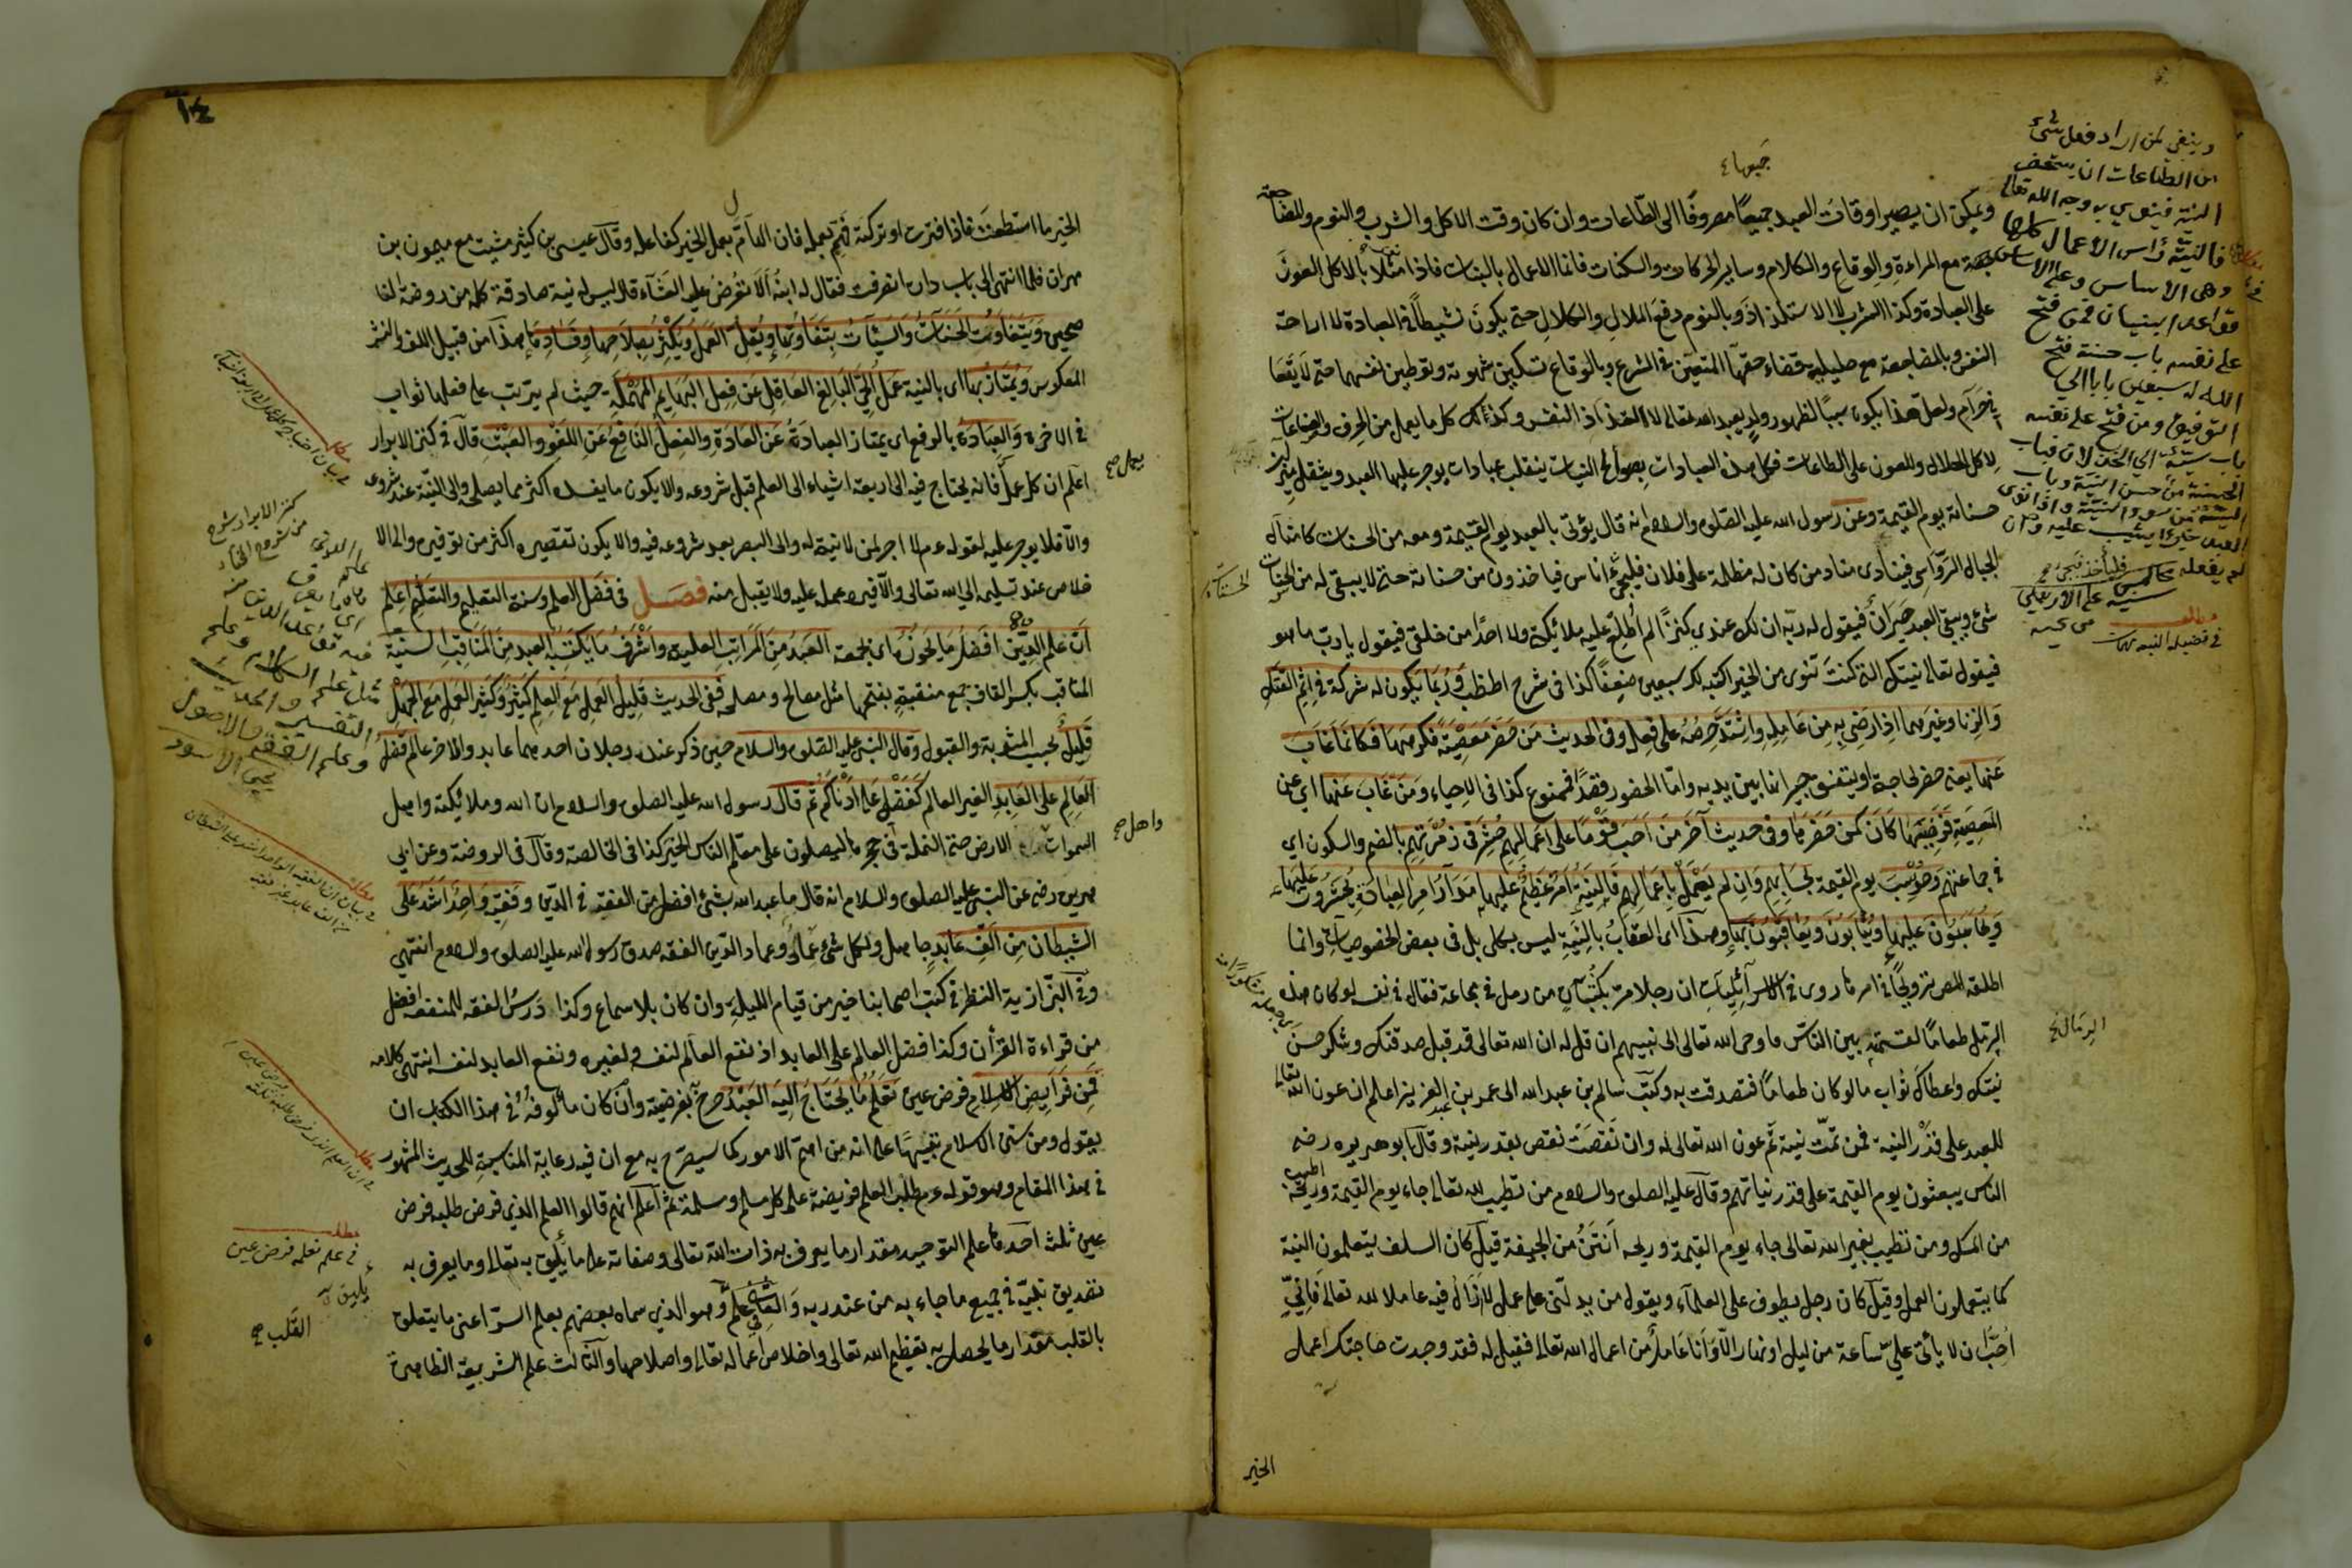 ويمكن ان يصير اوقات العبد جميعًا مصروفًا الى الطّاعات وان كان وقت الاكل والشرب والنوم والمضاجعة
مع المراءة والوقاع والكلام وساير الحركات والسكنات فانما الاعمال بالنيات فاذا مثلا بالاكل العون
على العبادة وكذا الشرب لا الاستلذاذ وبالنوم دفع الملال والكلال حتى يكون نشيطًا في العبادة لا اراحة
النفس وبالمضاجعة مع حليليه قضاء حقها المتعين في الشرع وبالوقاع تسكين شهوته وتوطين نفسهما حتى لا يقعا
في حرام ولعل هذا يكون سببًا لظهور ولد يعبد الله تعالى لا التذاذ النفس وكذلك كل ما يعمل من الحرف والصناعات
لاكل الحلال وللعون على الطاعات فكل هذه العبادات بصوالح النيات ينقلب عبادات يوجر عليها العبد ويثقل ميزان
حسناته يوم القيمة وعن رسول الله عليه الصلوة والسلام انه قال يؤتى بالعبد يوم القيمة ومعه من الحسنات كامثال
الجبال الرّواسي فينادى مناد من كان له مظلمة على فلان فليجئ اناس فياخذون من حسناته حتى لا يبقى له من الحسنات
شئ ويبقى العبد حيران فيقول له ربه ان لك عندي كنزًا لم اطلع عليه ملائكتى ولا احدًا من خلقى فيقول يا رب ما هو
فيقول تعالى نيتك التى كنت تنوى من الخير اكتبه لك سبعين ضعفًا كذا في شرح الخطب وربما يكون له شركة في اثم القتل
والزنا وغيرهما اذا رضى به من عامله واشتد حرصه على فعله وفى الحديث من حضر معصية فكرهها فكانما غاب
عنها يعنى حضر لحاجة او يتفق جريانها بين يديه وامّا الحضور قصدًا فممنوع كذا في الاحياء ومن غاب عنها اي عن
المعصية فرضيها كان كمن حضرها وفى حديث آخر من احب قومًا على اعمالهم حشر في زمرتهم بالضم والسكون اي
في جماعتهم وحوسب يوم القيمة بحسابهم وان لم يعمل باعمالهم فالنية امر عظيم عليها مدار امر العبادة يحشرون عليها
ويحاسبون عليها ويثابون ويعاقبون بها وهذا اى العقاب بالنية ليس بكلى بل في بعض الخصوصيات وانما
اطلقه المص ترويجًا في امر ما روى في الاسرائيليات ان رجلا مر بكثبان من رمل في مجاعة فقال في نفسه لو كان هذه
الرمل طعامًا لقسمته بين الناس فاوحى الله تعالى الى نبيهم ان قل له ان الله تعالى قد قبل صدقتك وشكر حسن
نيتك واعطاك ثواب ما لو كان طعامًا فتصدقت به وكتب سالم بن عبد الله الى عمر بن عبد العزيز اعلم ان عون الله تعالى
للعبد على قدر النية فمن تمت نيته تم عون الله تعالى له وان نقصت نقص بقدر نيته وقال ابو هريره رضه
الناس يبعثون يوم القيمة على قدر نياتهم وقال عليه الصلوة والسلام من تطيب لله تعالى جاء يوم القيمة وريحه اطيب
من المسك ومن تطيب بغير الله تعالى جاء يوم القيمة وريحه انتن من الجيفة قيل كان السلف يتعلمون النية
كما يتعلمون العمل وقيل كان رجل يطوف على العلماء ويقول من يدلنى على عمل لا ازال فيه عاملا لله تعالى فانى
احب ان لا يأتى على ساعة من ليل او نهار الا وانا عامل من اعمال الله تعالى فقيل له فقد وجدت حاجتك اعمل
الخير
وينبغى لمن اراد فعل شئ
من الطاعات ان يستحضر
النية فينوى به وجه الله تعالى
فالنية رأس الاعمال كلها
وهى الاساس وعلى الاساس
قواعد البنيان فمن فتح
على نفسه باب حسنة فتح
الله له سبعين بابا الى
التوفيق ومن فتح على نفسه
باب سيئة
١٤
الخير ما استطعت فاذا فترت او تركته فهم بعمله فان الهام بعمل الخير كفاعله وقال عيسى بن كثير مشيت مع ميمون بن
مهران فلما انتهى الى باب داره انصرفت فقال له ابنه الا تعرض عليه العشاء قال ليس له نية صادقة كله من روضة لنا
صحيح ويتفاوت الحسنات والسيئات بتفاوتها ويقل العمل ويكثر بصلاحها وفسادها هذا من قبيل اللف والنشر
المعكوس ويمتاز بها اى بالنية عمل الحى البالغ العاقل عن فعل البهايم المهملة حيث لم يترتب على فعلها ثواب
في الاخرة والعبادة بالرفع اى يمتاز العبادة عن العادة والفعل النافع عن اللغو والعبث قال في كنز الابرار
اعلم ان كل عمل فانه يحتاج فيه الى اربعة اشياء الى العلم قبل شروعه والا يكون ما يفسده اكثر مما يصلحه والى النية عند شروعه
والا فلا يوجر عليه لقوله عم لا اجر لمن لا نية له والى الصبر بعد شروعه فيه والا يكون تقصيره اكثر من توقيره والى الا
خلاص عند تسليمه الى الله تعالى والا فيرد عمله عليه ولا يقبل منه فصل في فضل العلم وسنة التعليم والتعلم اعلم
ان علم الدين افضل ما يحوز اى يجمعه العبد من المراتب العلية واشرف ما يكتسبه العبد من المناقب السنية
المناقب بكسر القاف جمع منقبة بفتحها مثل مصالح ومصلحة ففى الحديث قليل العمل مع العلم كثير وكثير العمل مع الجهل
قليل بحسب المثوبة والقبول وقال النبى عليه الصلوة والسلام حين ذكر عنده رجلان احدهما عابد والاخر عالم فضل
العالم على العابد الغير العالم كفضلى على ادناكم ثم قال رسول الله عليه الصلوة والسلام ان الله وملائكته واهل
السموات الارض حتى النملة في جحرها ليصلون على معلم الناس الخير كذا في الخالصة وقال في الروضة وعن ابى
هريره رضى عن النبى عليه الصلوة والسلام انه قال ما عبد الله بشئ افضل من الفقه في الدين وفقيه واحد اشد على
الشيطان من الف عابد جاهل ولكل شئ عماد وعماد الدين الفقه صدق رسول الله عليه الصلوة والسلام انتهى
وفى البزازية النظر في كتب اصحابنا خير من قيام الليلة وان كان بلا سماع وكذا درس الفقه للمتفقه افضل
من قراءة القرأن وكذا فضل العالم على العابد اذ نفع العالم لنفسه ولغيره ونفع العابد لنفسه انتهى كلامه
فمن فرايض الاسلام فرض عين تعلم ما يحتاج اليه العبد صرح بفرضيته وان كان مألوفه في هذا الكتاب ان
يقول ومن سنن الاسلام تنبيهًا على انه من اهم الامور كما سيصرح به مع ان فيه رعاية المناسبة للحديث المشهور
في هذا المقام وهو قوله عم طلب العلم فريضة على كل مسلم ومسلمة ثم اعلم انهم قالوا العلم الذي فرض طلبه فرض
عين ثلث احدها علم التوحيد مقدار ما يعرف به ذات الله تعالى وصفاته على ما يليق به تعالى وما يعرف به
تصديق نبيه في جميع ما جاء به من عند ربه والثانى علم وهو الذي سماه بعضهم بعلم السرّ اعنى ما يتعلق
بالقلب مقدار ما يحصل به تعظيم الله تعالى واخلاص اعماله تعالى واصلاحها والثالث علم الشريعة الظاهرة
واهل صح
في علم تعلمه فرض عين
القلب صح